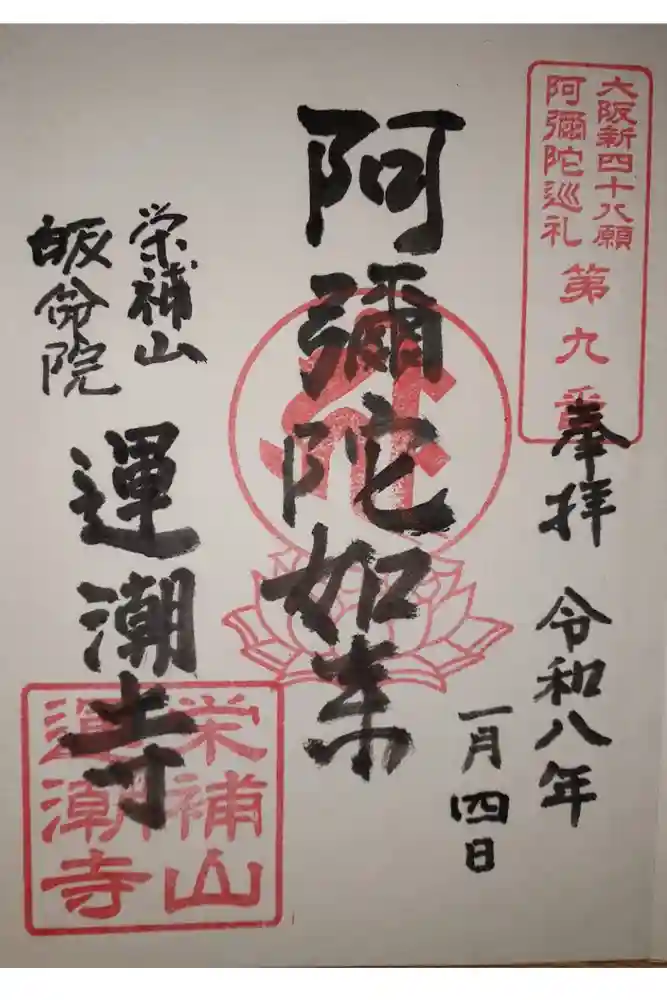 大阪新四十八願
阿彌陀巡礼
第九番
奉拝 令和八年
一月四日
阿彌陀如来
栄補山
皈命院
運潮寺
栄補山
運潮寺